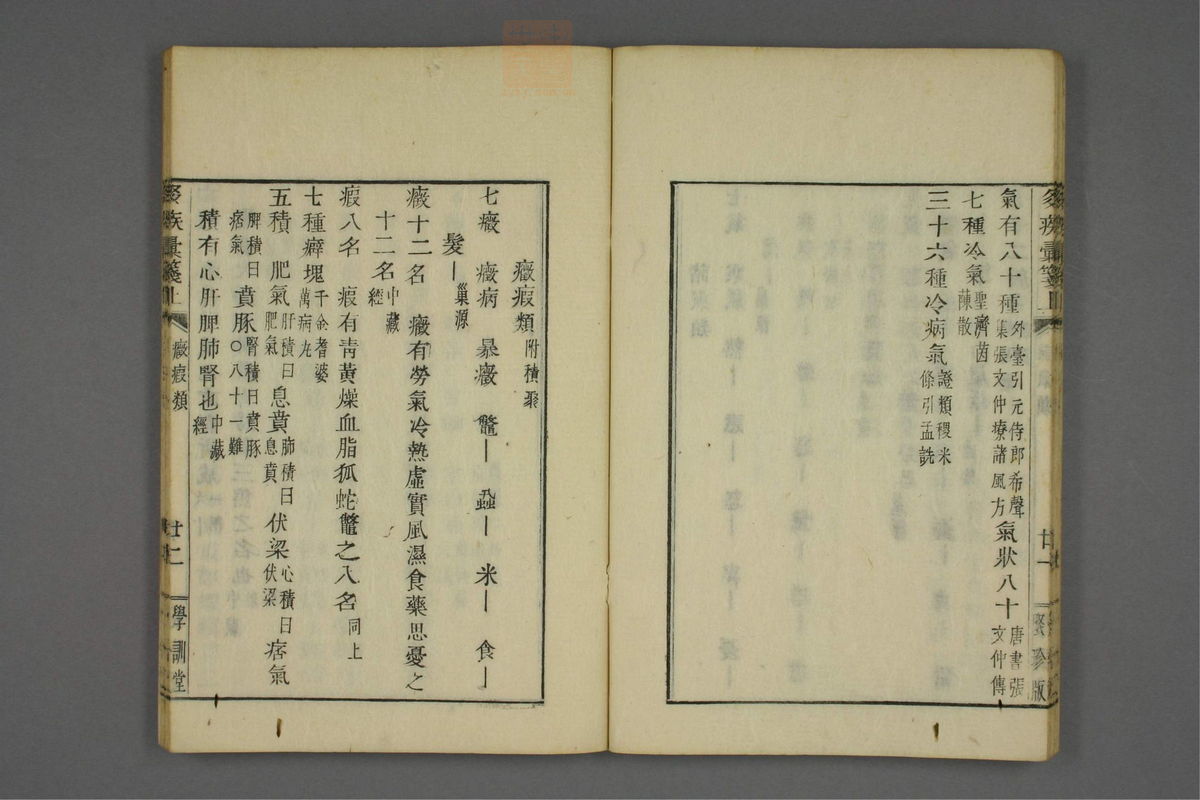 氣有八十種外臺引元侍郎希聲集張文仲療諸風方氣狀八十唐書張文仲傳
七種冷氣聖濟茵蔯散
三十六種冷病氣證類稷米條引孟詵
廿一
聚珍版
癥瘕類附積聚
七癥 癥病 暴癥 鼈— 蝨— 米— 食—
髮—巢源
癥十二名 癥有勞氣冷熱虛實風濕食藥思憂之
十二名中藏經
瘕八名 瘕有靑黃燥血脂狐蛇鼈之八名同上
七種癖塊千金耆婆萬病丸
五積 肥氣肝積曰肥氣 息賁肺積曰息賁 伏梁心積曰伏梁 痞氣
脾積曰痞氣 賁豚腎積曰賁豚〇八十一難
積有心肝脾肺腎也中藏經
癥瘕類
廿二
學訓堂